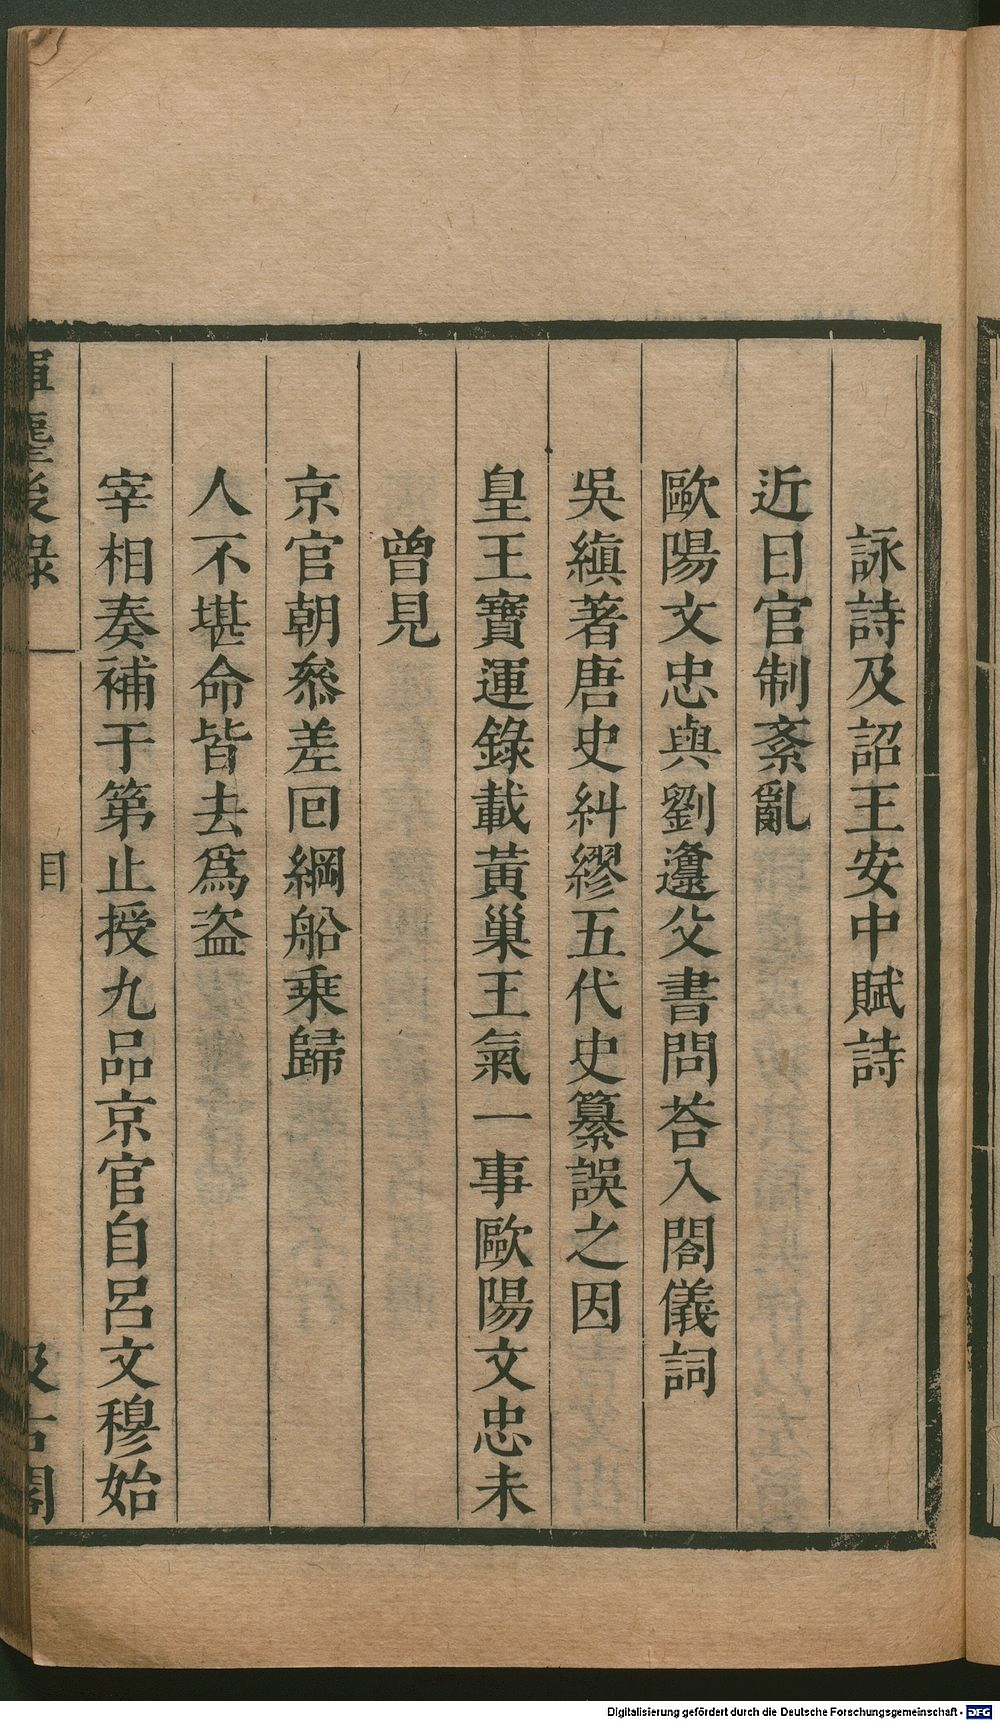 詠詩及詔王安中賦詩
近日官制紊亂
歐陽文忠與劉邍父書問荅入閤儀詞
吳縝著唐史糾繆五代史纂誤之因
皇王寶運錄載黃巢王氣一事歐陽文忠未
曾見
京官朝叅差回綱船乗歸
人不堪命皆去爲盗
宰相奏補于第止授九品京官自呂文穆始
揮麈後錄
目
汲古閣
Digitalisierung gefördert durch die Deutsche Forschungsgemeinschaft - DFG